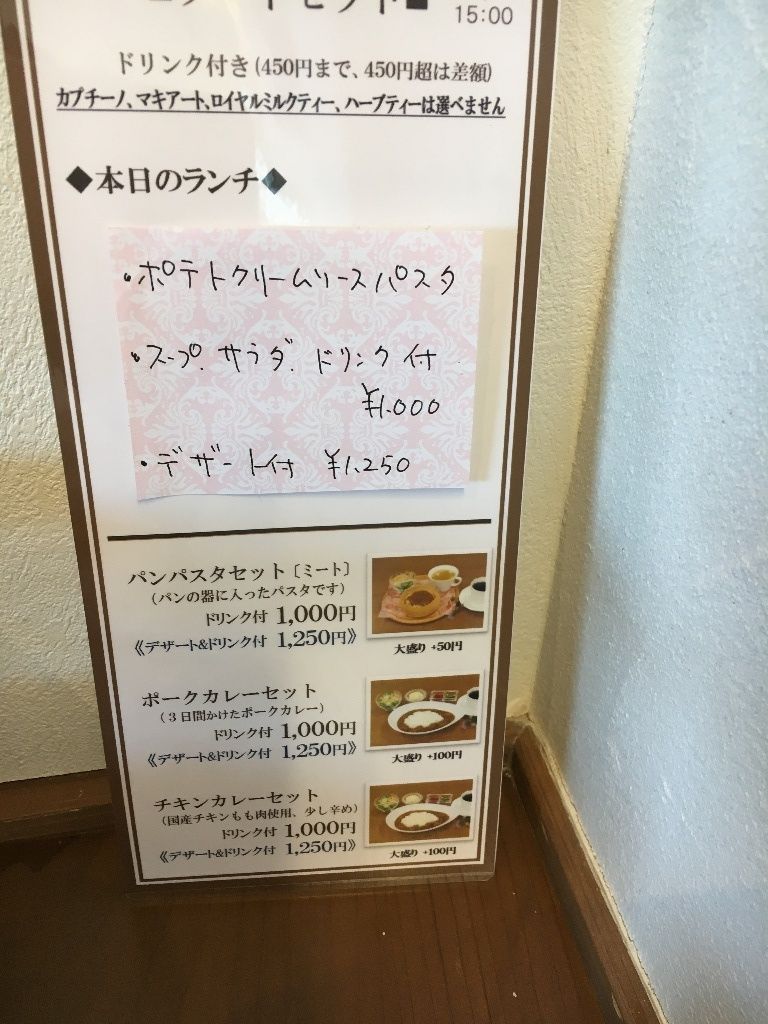 15:00
ドリンク付き(450円まで、450円超は差額)
カプチーノ、マキアート、ロイヤルミルクティー、ハーブティーは選べません
◆本日のランチ◆
・ポテトクリームソースパスタ
・スープ.サラダ.ドリンク付
¥1.000
・デザート付 ¥1.250
パンパスタセット〔ミート〕
(パンの器に入ったパスタです)
ドリンク付 1,000円
《デザート&ドリンク付 1,250円》
大盛り +50円
ポークカレーセット
(3日間かけたポークカレー)
ドリンク付 1,000円
《デザート&ドリンク付 1,250円》
大盛り +100円
チキンカレーセット
(国産チキンもも肉使用、少し辛め)
ドリンク付 1,000円
《デザート&ドリンク付 1,250円》
大盛り +100円